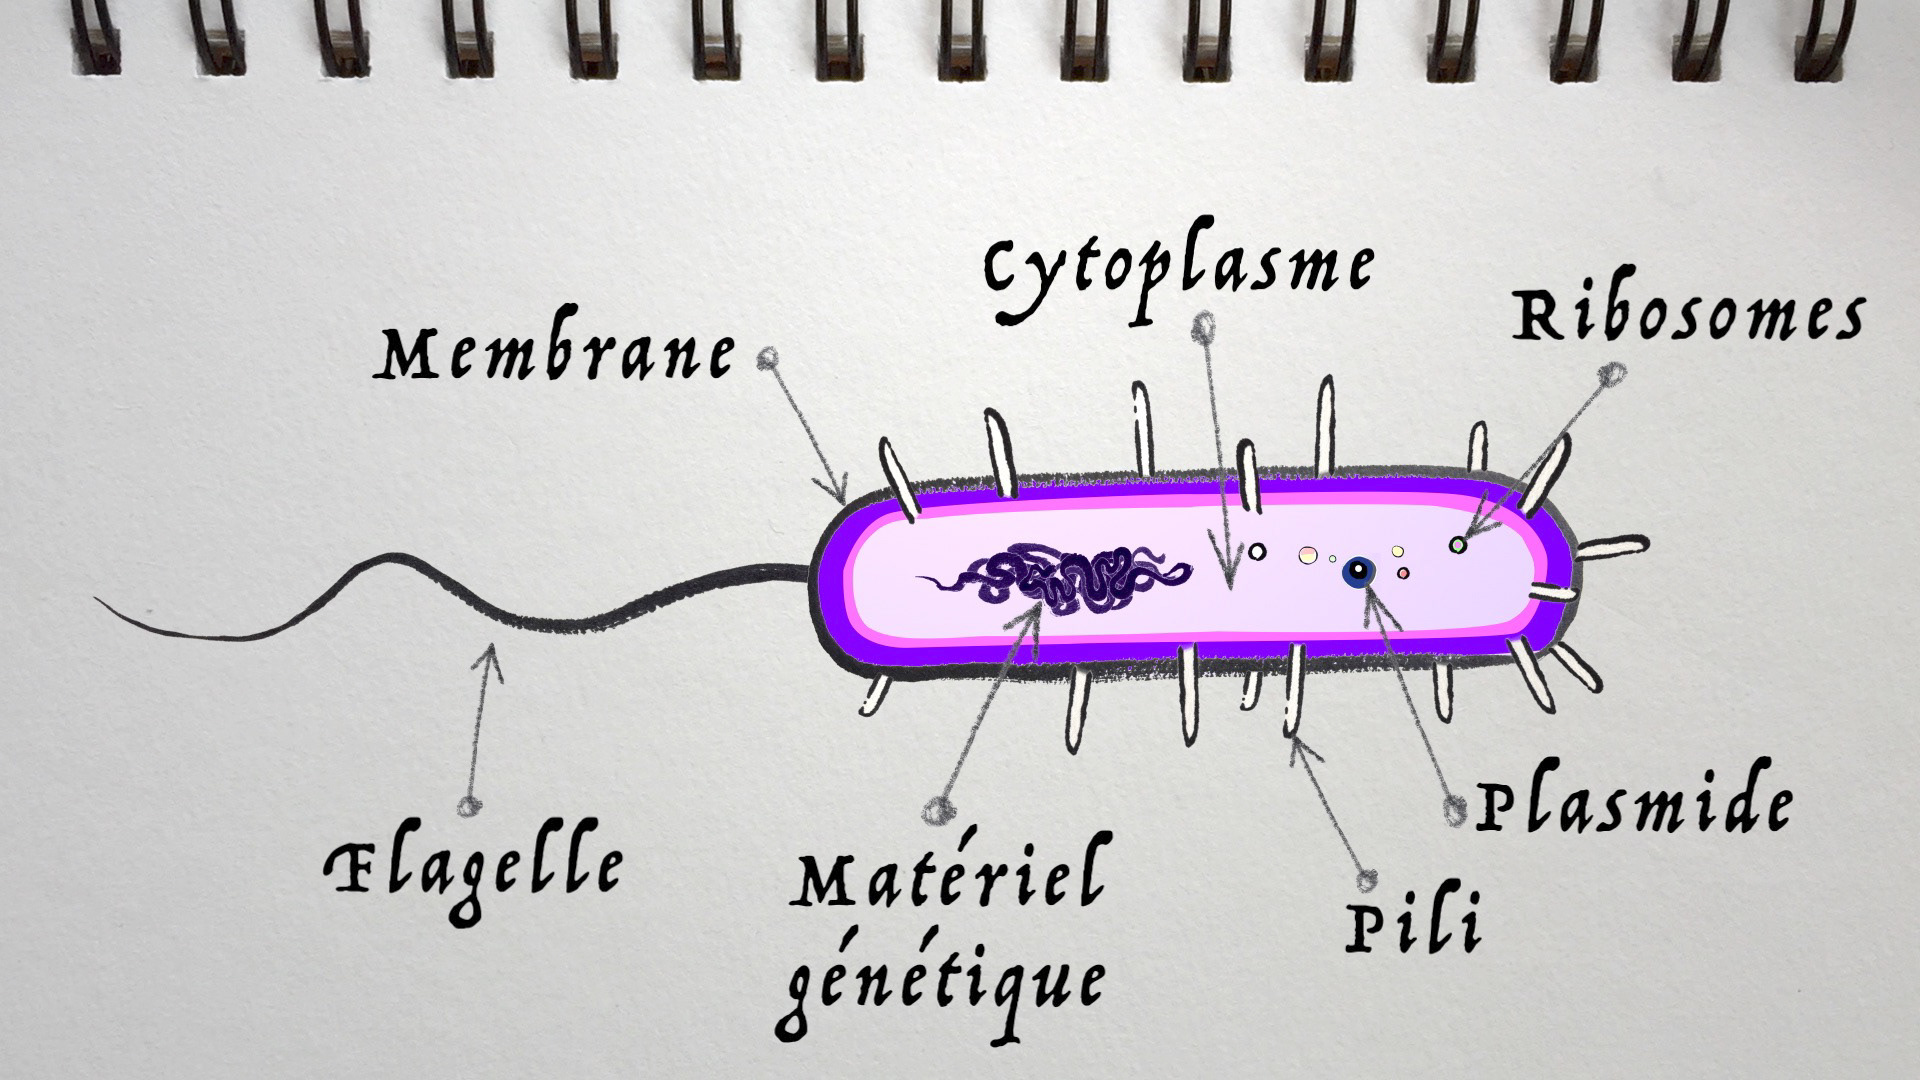 Cytoplasme
Ribosomes
Membrane
Plasmide
Flagelle
Matériel
génétique
Pili